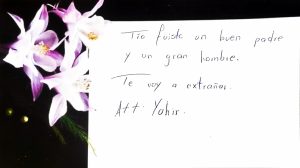 Tio fuiste un buen padre
y un gran hombre.
Te voy a extrañar.
Att: Yahir.